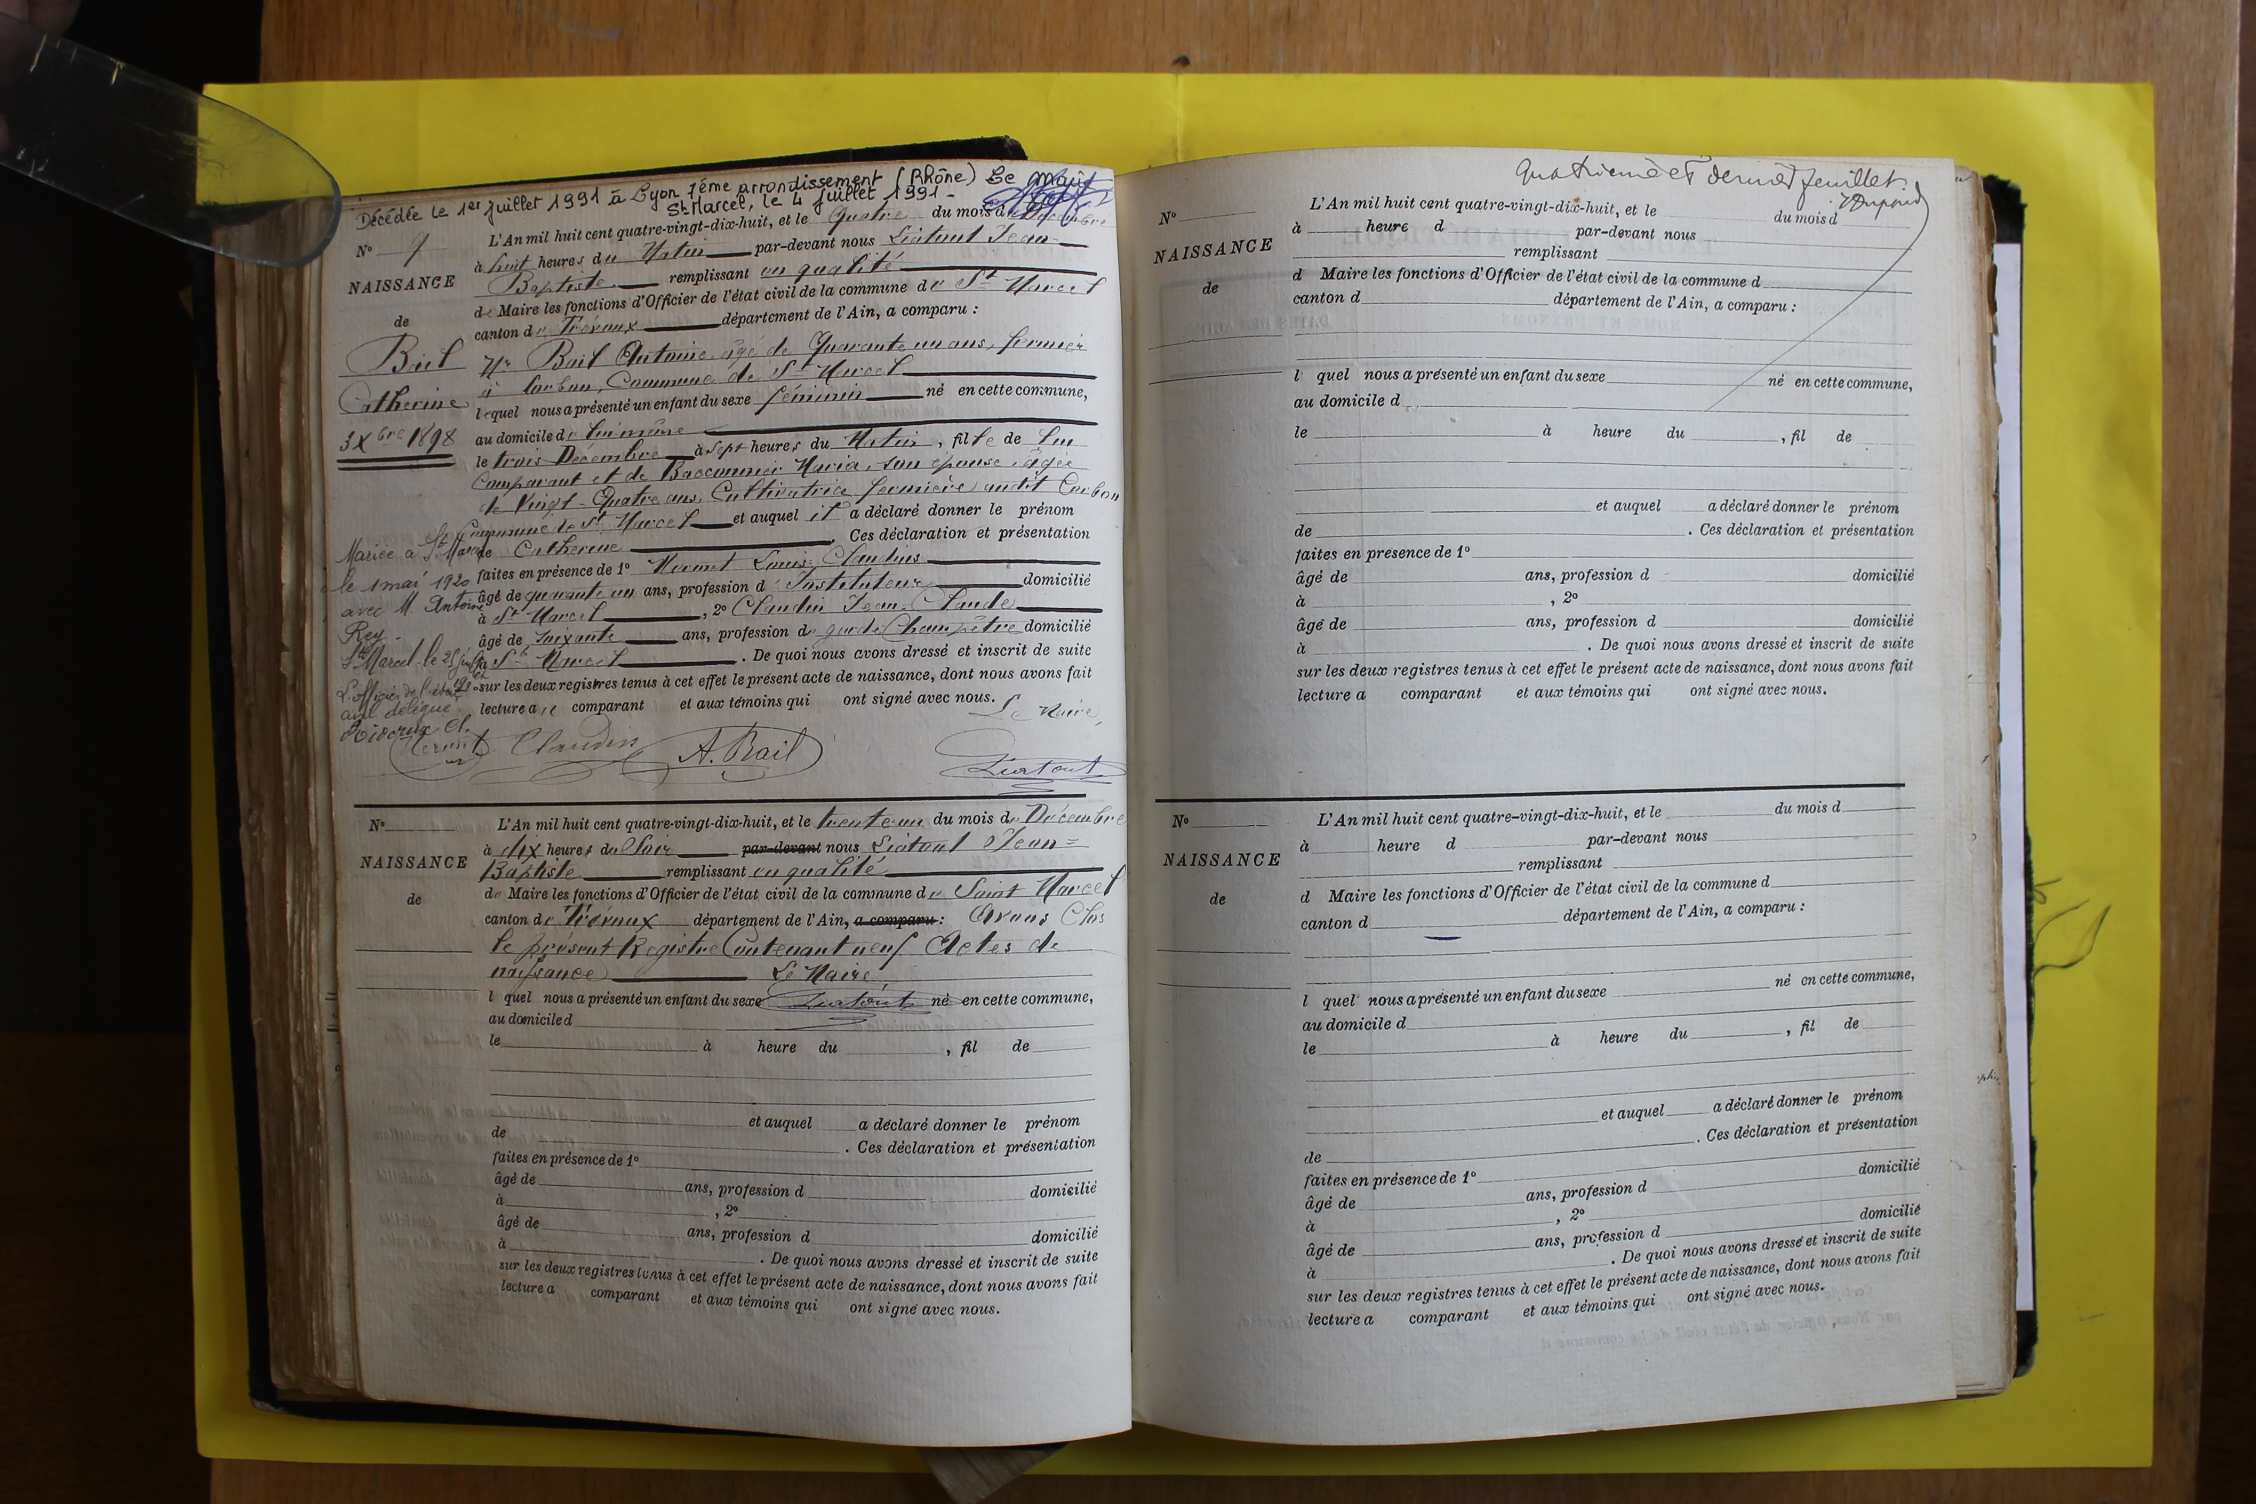 Décédée le 1er juillet 1991 à Lyon 7ème arrondissement (Rhône) Le Maire
St Marcel, le 4 juillet 1991 -
N° 9
NAISSANCE
de
Bail
Catherine
3 Xbre 1898
L'An mil huit cent quatre-vingt-dix-huit, et le quatre du mois de Décembre
à huit heures du Matin par-devant nous Liatout Jean-
Baptiste remplissant en qualité
de Maire les fonctions d'Officier de l'état civil de la commune de St Marcel
canton de Trévoux département de l'Ain, a comparu :
Mr Bail Antoine âgé de Quarante un ans, fermier
à Corbon, Commune de St Marcel
lequel nous a présenté un enfant du sexe féminin né en cette commune,
au domicile de lui même
le trois Décembre à sept heures du Matin, fille de lui
Comparant et de Bacconnier Maria, son épouse, âgée
de Vingt-Quatre ans, Cultivatrice fermière audit Corbon
Commune de St Marcel et auquel il a déclaré donner le prénom
de Catherine . Ces déclaration et présentation
faites en présence de 1° Mermet Louis Claudius
âgé de quarante un ans, profession d'Instituteur domicilié
à St Marcel , 2° Claudin Jean-Claude
âgé de soixante ans, profession de garde Champêtre domicilié
à St Marcel . De quoi nous avons dressé et inscrit de suite
sur les deux registres tenus à cet effet le présent acte de naissance, dont nous avons fait
lecture au comparant et aux témoins qui ont signé avec nous.
Le Maire,
Mermet Claudin A. Bail Liatout
Mariée à St Marcel
le 1 mai 1920
avec M. Antoine
Rey -
St Marcel le 25
L'officier de l'état
civil délégué
N°
NAISSANCE
de
L'An mil huit cent quatre-vingt-dix-huit, et le trente un du mois de Décembre
à dix heures du Soir par-devant nous Liatout Jean=
Baptiste remplissant en qualité
de Maire les fonctions d'Officier de l'état civil de la commune de Saint Marcel
canton de Trévoux département de l'Ain, a comparu : Avons Clos
le présent Registre Contenant neuf Actes de
naissance Le Maire
l quel nous a présenté un enfant du sexe Liatout né en cette commune,
au domicile d
le à heure du , fil de
et auquel a déclaré donner le prénom
de . Ces déclaration et présentation
faites en présence de 1°
âgé de ans, profession d domicilié
à , 2°
âgé de ans, profession d domicilié
à . De quoi nous avons dressé et inscrit de suite
sur les deux registres tenus à cet effet le présent acte de naissance, dont nous avons fait
lecture a comparant et aux témoins qui ont signé avec nous.
Quatrième et dernier feuillet.
Dupond
N°
NAISSANCE
de
L'An mil huit cent quatre-vingt-dix-huit, et le du mois d
à heure d par-devant nous
remplissant
d Maire les fonctions d'Officier de l'état civil de la commune d
canton d département de l'Ain, a comparu :
l quel nous a présenté un enfant du sexe né en cette commune,
au domicile d
le à heure du , fil de
et auquel a déclaré donner le prénom
de . Ces déclaration et présentation
faites en présence de 1°
âgé de ans, profession d domicilié
à , 2°
âgé de ans, profession d domicilié
à . De quoi nous avons dressé et inscrit de suite
sur les deux registres tenus à cet effet le présent acte de naissance, dont nous avons fait
lecture a comparant et aux témoins qui ont signé avec nous.
N°
NAISSANCE
de
L'An mil huit cent quatre-vingt-dix-huit, et le du mois d
à heure d par-devant nous
remplissant
d Maire les fonctions d'Officier de l'état civil de la commune d
canton d département de l'Ain, a comparu :
l quel nous a présenté un enfant du sexe né en cette commune,
au domicile d
le à heure du , fil de
et auquel a déclaré donner le prénom
de . Ces déclaration et présentation
faites en présence de 1°
âgé de ans, profession d domicilié
à , 2°
âgé de ans, profession d domicilié
à . De quoi nous avons dressé et inscrit de suite
sur les deux registres tenus à cet effet le présent acte de naissance, dont nous avons fait
lecture a comparant et aux témoins qui ont signé avec nous.